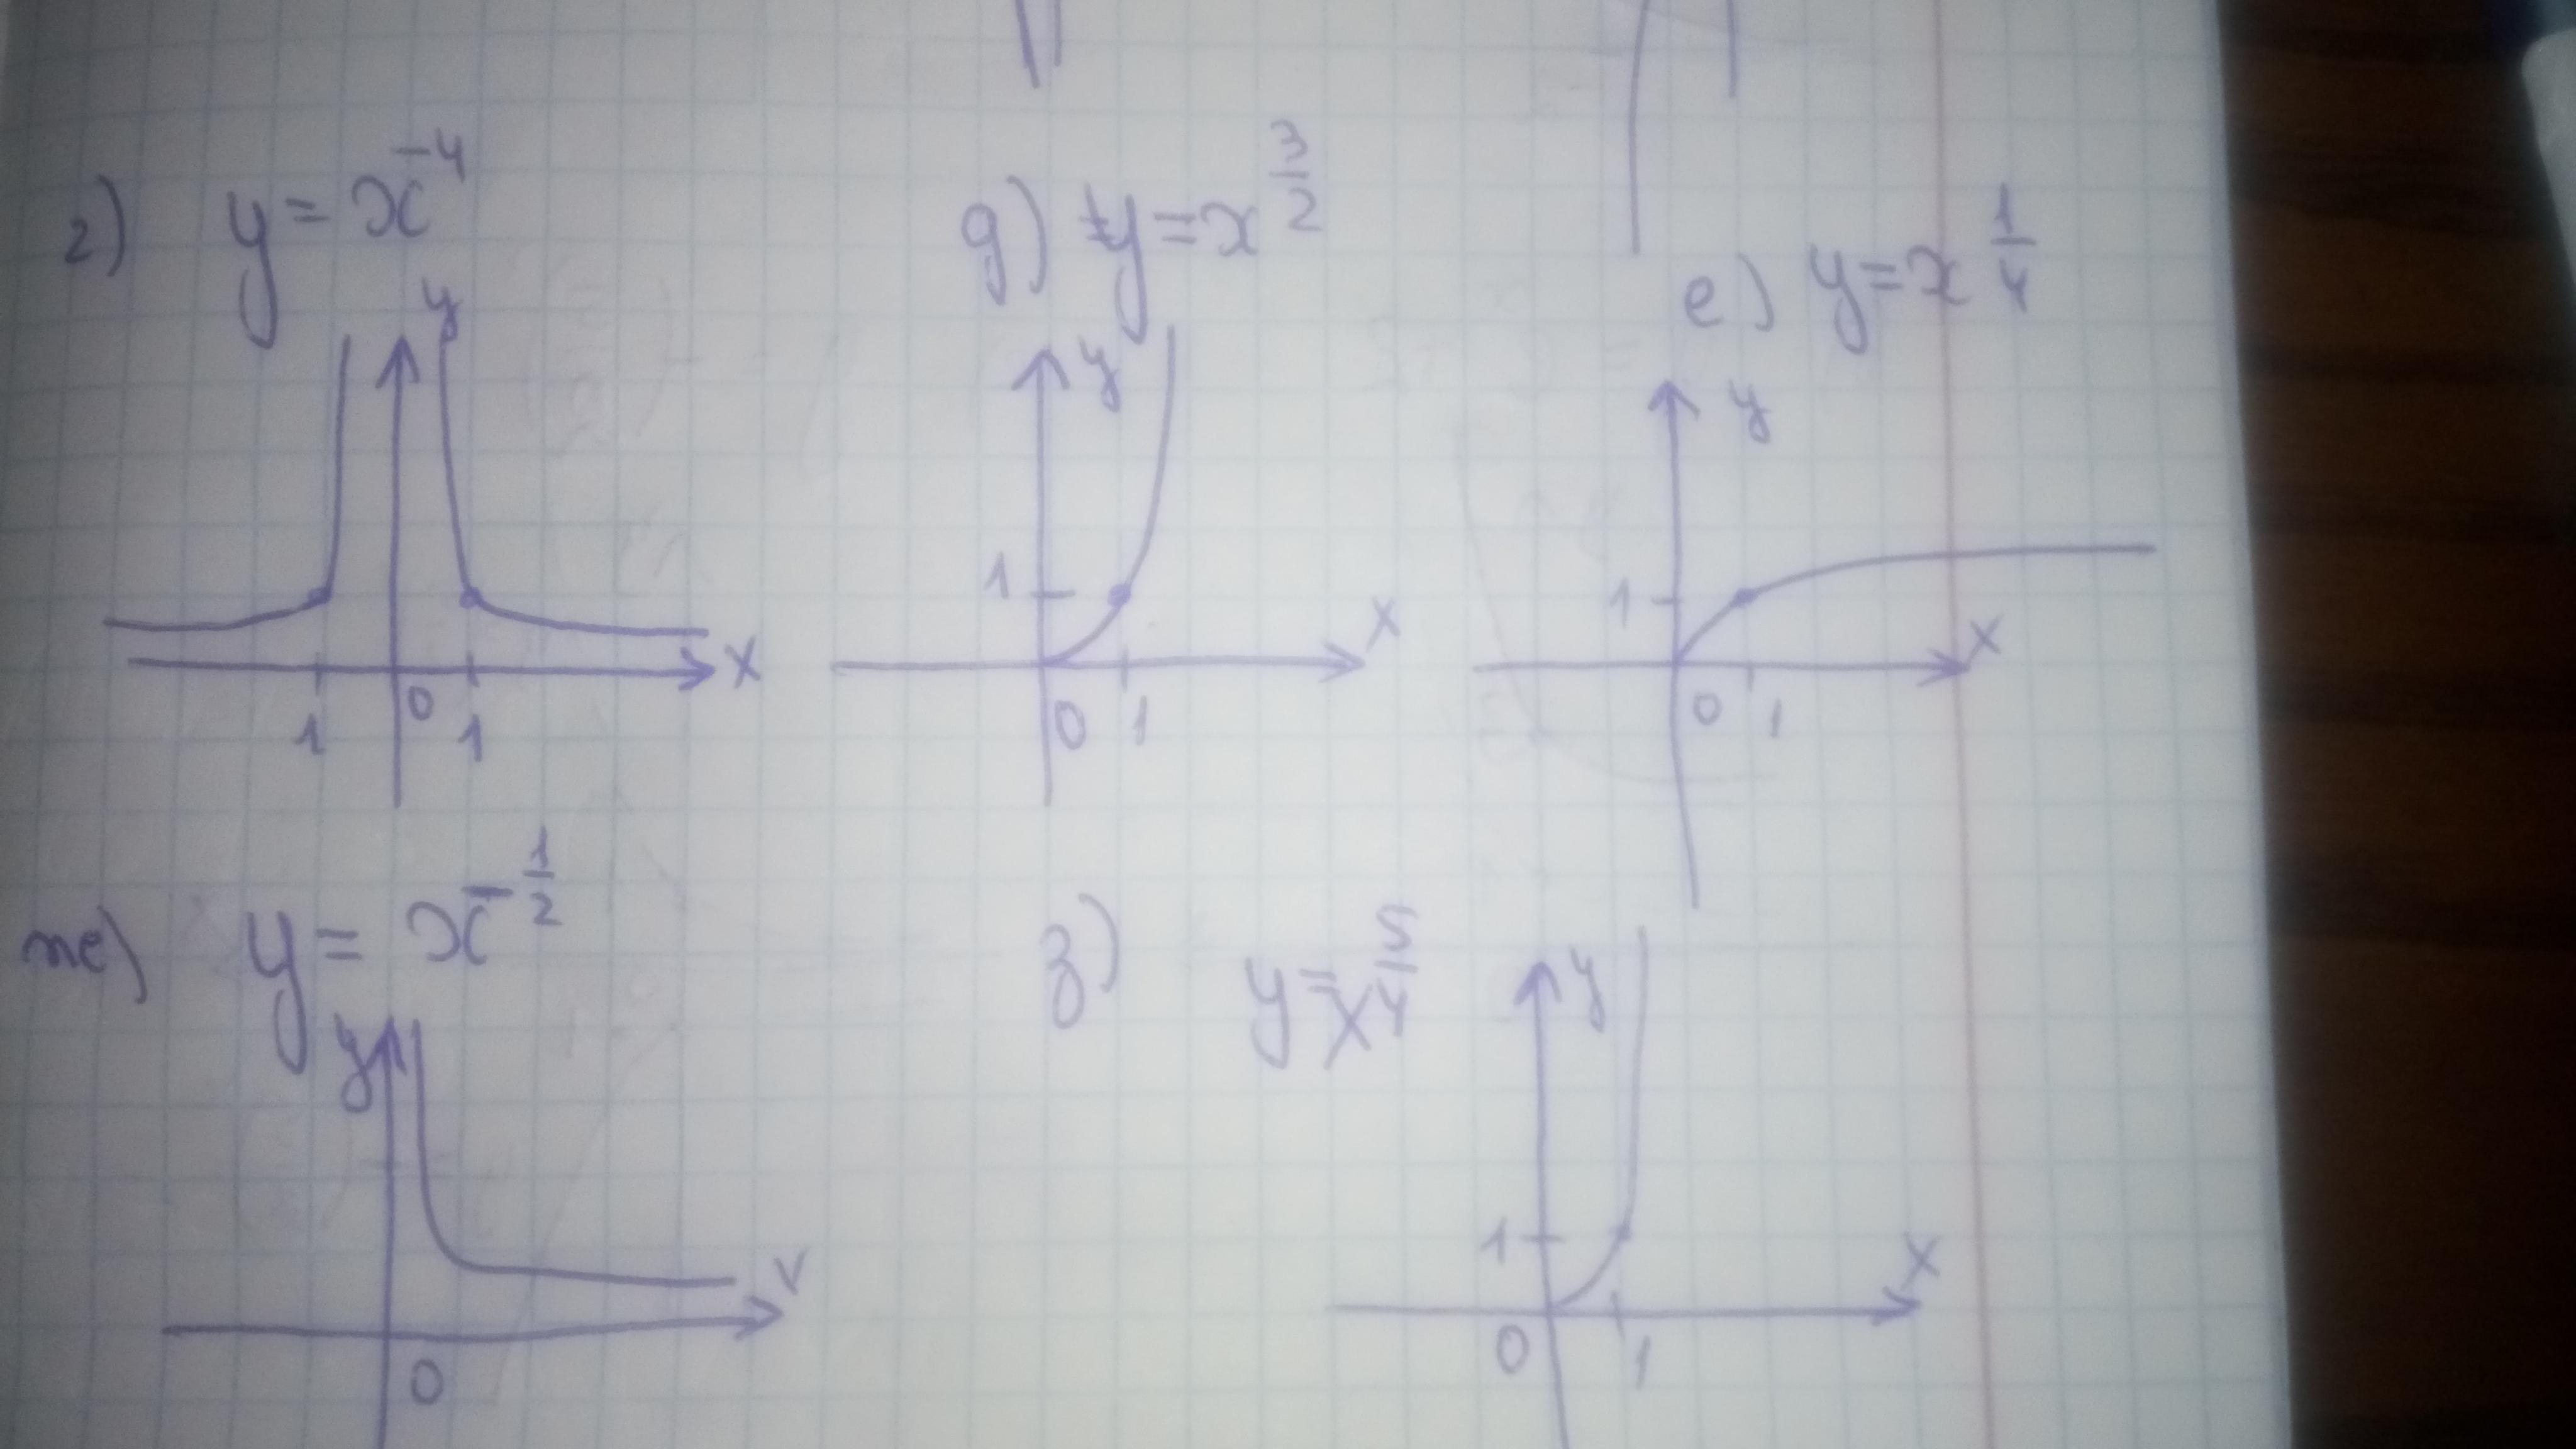 г) y = x⁻⁴
y
x
0
1 1
g) y = x^(3/2)
y
1
x
0 1
е) y = x^(1/4)
y
1
x
0 1
ж) y = x^(-1/2)
y
x
0
з) y = x^(5/4)
y
1
x
0 1